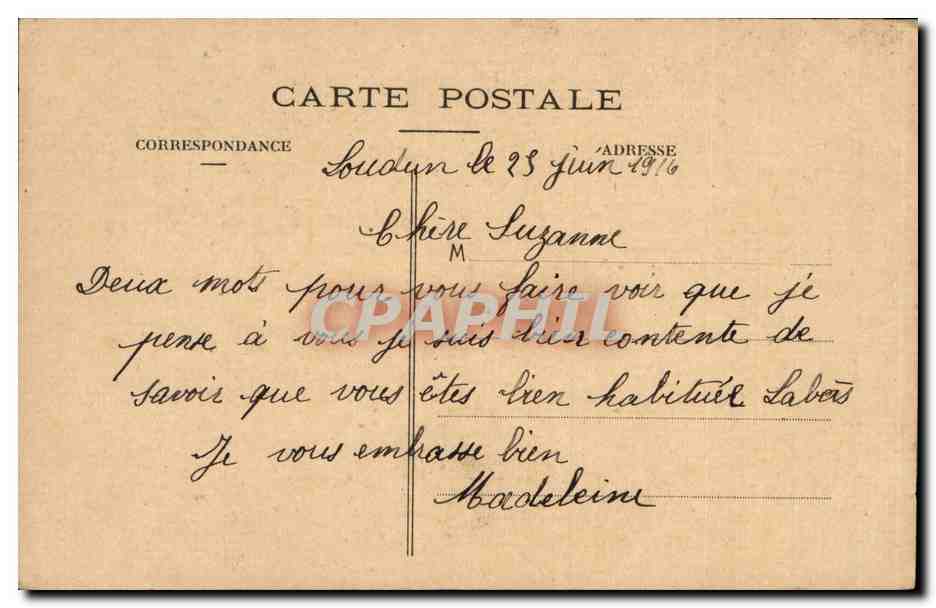 CARTE POSTALE
CORRESPONDANCE
ADRESSE
Loudun le 23 juin 1916
Chère Suzanne
M
Deux mots pour vous faire voir que je
CPAPHIL
pense à vous je suis bien contente de
savoir que vous êtes bien habituée
Je vous embrasse bien
Madeleine